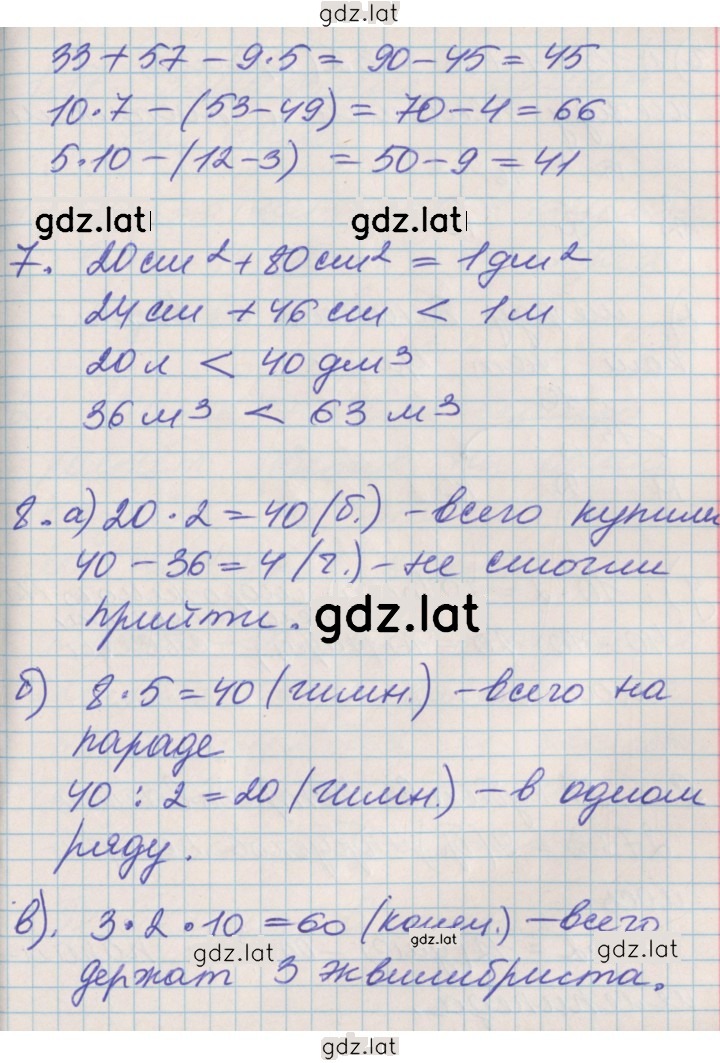 gdz.lat
33 + 57 - 9·5 = 90 - 45 = 45
10·7 - (53-49) = 70 - 4 = 66
5·10 - (12-3) = 50 - 9 = 41
gdz.lat gdz.lat
7. 20 см² + 80 см² = 1 дм²
24 см + 46 см < 1 м
20 л < 40 дм³
36 м³ < 63 м³
8. а) 20 · 2 = 40 (б.) - всего купили
40 - 36 = 4 (ч.) - не смогли
прийти. gdz.lat
б) 8 · 5 = 40 (гимн.) - всего на
параде
40 : 2 = 20 (гимн.) - в одном
ряду.
в). 3 · 2 · 10 = 60 (колец.) - всего
gdz.lat gdz.lat gdz.lat
держат 3 эквилибриста.
gdz.lat